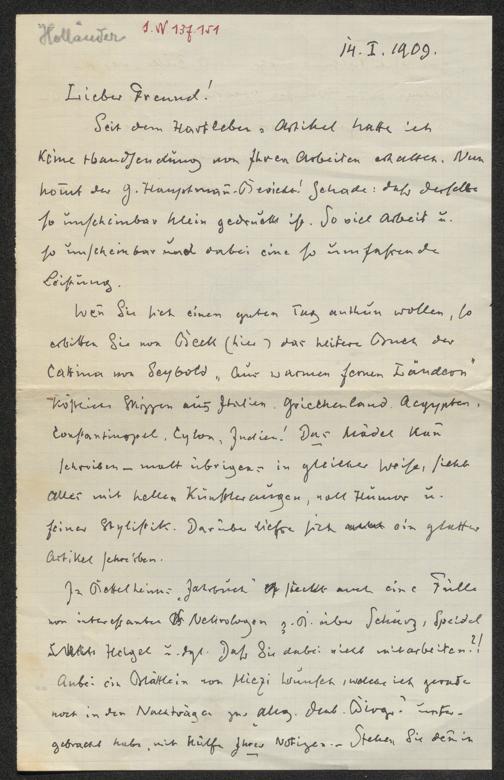 Holländer
I. N 137.151
14. I. 1909.
Lieber Freund!
Seit dem Hartleben-Artikel hatte ich
keine Handsendung von Ihren Arbeiten erhalten. Nun
kom̄t der G. Hauptman̄-Bericht! Schade: daß derselbe
so unscheinbar klein gedruckt ist. So viel Arbeit u.
so unscheinbar und dabei eine so umfassende
Leistung.
Wen̄ Sie sich einen guten Tag anthun wollen, so
erbitten Sie von Beck (hier) das heitere Buch der
von Seybold „Aus warmen fernen Ländern"
Köstliche Skizzen aus Italien. Griechenland. Aegypten.
Constantinopel. Cylon, Indien! Das Mädel kan̄
schreiben – malt übrigens in gleicher Weise, sieht
alles mit hellen Künstleraugen, voll Humor u.
feiner Stylistik. Darüber ließe sich ein glatter
Artikel schreiben.
In Bettelheims „Jahrbuch" steckt auch eine Fülle
von interessanten Nekrologen z. B. über Schurz, Speidel
Heigel u. dgl. Daß Sie dabei nicht mitarbeiten?!
Anbei ein Blättlein von Miczi Wunsch, welche ich gerade
noch in den Nachträgen zur „Allg. deut. Biogr." unter-
gebracht habe, mit Hülfe Ihrer Notizen. – Stehen Sie den̄ in